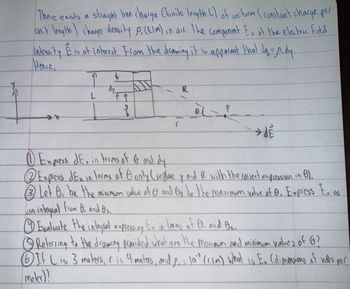 There exists a straight line charge (finite length L) of uniform (constant charge per
unit length) charge density ρₗ (C/m) in air. The component Ex of the electric field
intensity E is of interest. From the drawing it is apparent that dq=ρₗ dy.
Hence,
L
dy
y
R
y
x
θ
P
r
dE
① Express dEx in terms of θ and dy
② Express dEx in terms of θ only (replace y and R with the correct expression in θ).
③ Let θ₁ be the minimum value of θ and θ₂ be the maximum value of θ. Express Ex as
an integral from θ₁ and θ₂.
④ Evaluate the integral expressing Ex in terms of θ₁ and θ₂.
⑤ Referring to the drawing provided what are the maximum and minimum values of θ?
⑥ If L is 3 meters, r is 4 meters, and ρₗ = (C/m) what is Ex (dimensions of volts per
meter)?